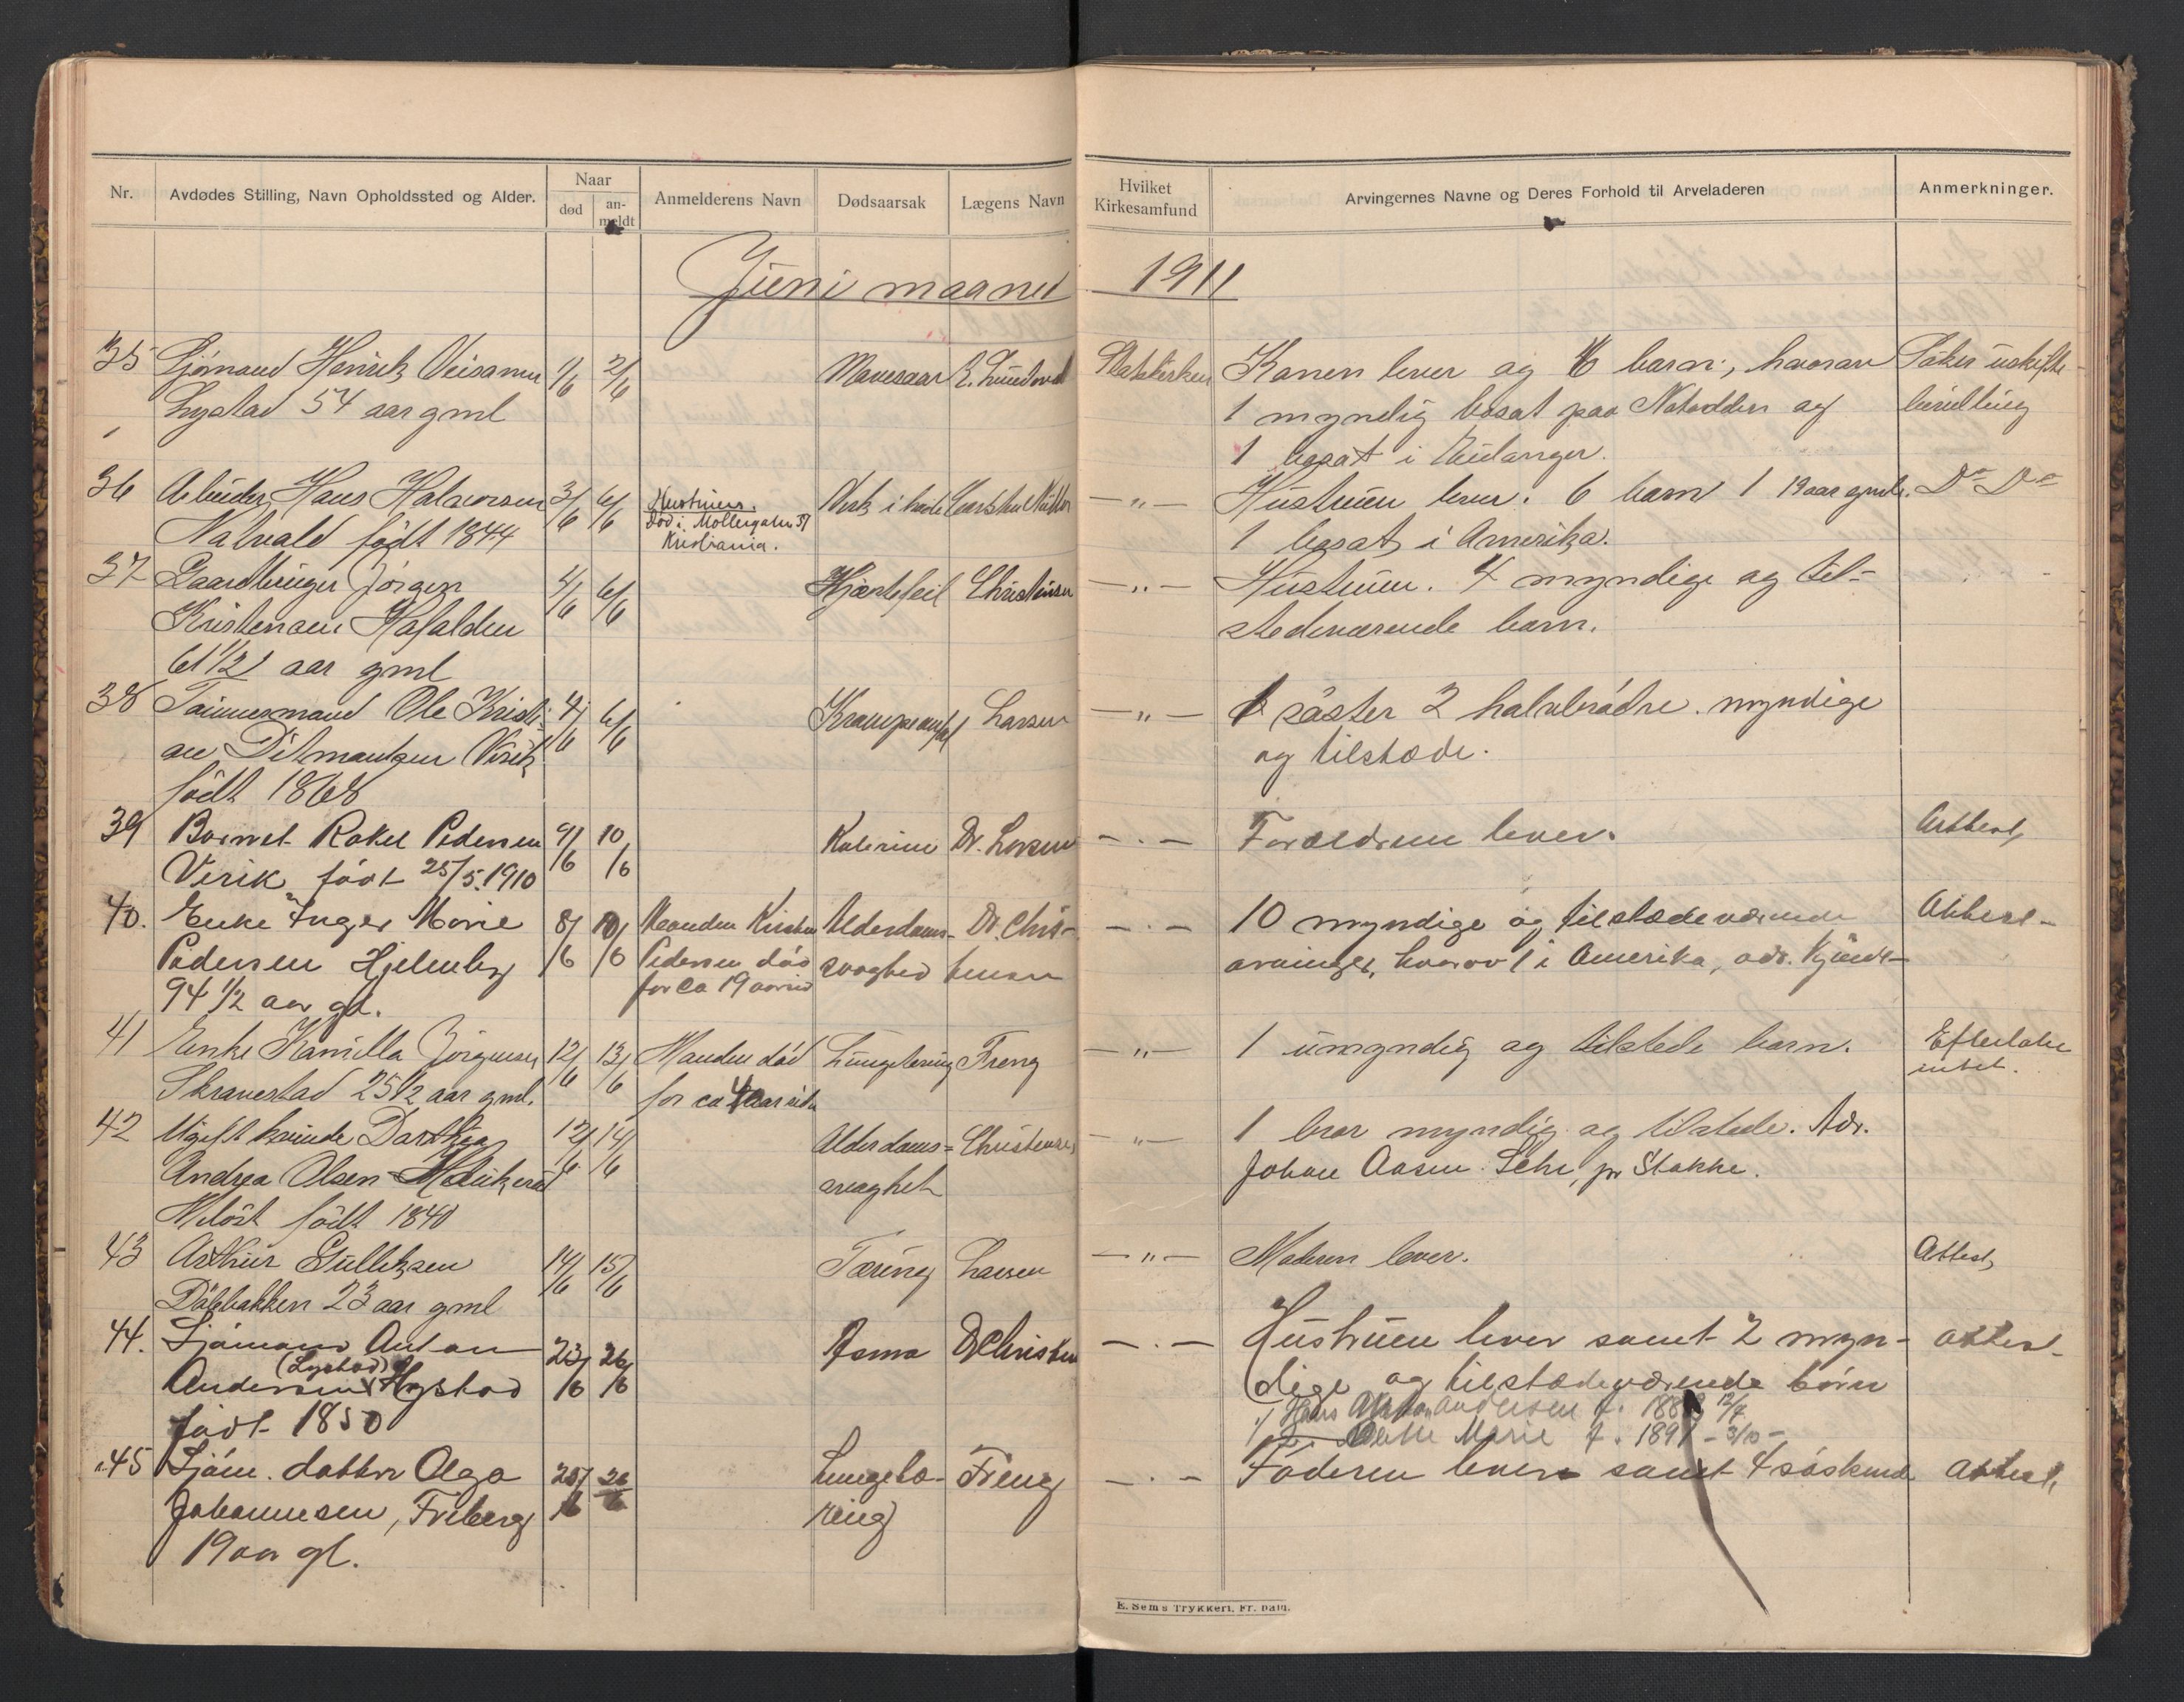 Nr. Avdødes Stilling, Navn Opholdssted og Alder. Naar død an-meldt Anmelderens Navn Dødsaarsak Lægens Navn Hvilket Kirkesamfund Arvingernes Navne og Deres Forhold til Arveladeren Anmerkninger.
Juni maaned 1911
35 Sjømand Henrik 1/6 2/6 Mavesaar Statskirken Konen lever og 6 barn, hvorav Søker uskifte
Lystad 54 aar gml 1 myndig bosat paa Notodden og bevilling
1 bosat i Eidanger.
36 Arbeider Hans Halvorsen 3/6 6/6 Hustruen. Død i Møllergaten 37 Kristiania. Carsten — „ — Hustruen lever. 6 barn 1 19 aar gml. Do Do
Natvald født 1844 1 bosat i Amerika.
37 Gaardbruger Jørgen 4/6 6/6 Hjertefeil Christensen — „ — Hustruen. 4 myndige og til-
Kristensen Hasalden stedeværende barn.
61 1/2 aar gml
38 Tømmermand Ole Kristi- 4/6 6/6 Krampeanfal Larsen — „ — 1 søster 2 halvbrødre. myndige
an Ditmantsen Virik og tilstæde.
født 1868
39 Barnet Rakel Pedersen 9/6 10/6 Dr. Larsen — „ — Forældrene lever. Attest
Virik født 25/5 1910
40. Enke Inger Marie 8/6 10/6 Manden Kristen Alderdoms- Dr. Chris- — „ — 10 myndige og tilstædeværende Attest
Pedersen Hjelmberg Pedersen død svaghed tensen arvinger, hvorav 1 i Amerika, adr. kjendt
94 1/2 aar gl. for ca 19 aar sid
41 Enke Kamilla Jørgensen 12/6 13/6 Manden død Lungetæring Freng — „ — 1 umyndig og tilstede barn. Efterlater
Skravestad 25 1/2 aar gml. for ca 4 aar siden intet.
42 Ugift kvinde Darthea 12/6 14/6 Alderdoms= Christensen — „ — 1 bror myndig og tilstede. Adr.
Andrea Olsen svaghet Johan Aasen Sehe, pr Stokke.
Meløst født 1840
43 Arthur Gulliksen 14/6 15/6 Tæring Larsen — „ — Moderen lever. Attest
Dølebakken 23 aar gml
44. Sjømand Anton 23/6 26/6 Asma Dr Christen Hustruen lever samt 2 myn- attest
(Lystad)
Andersen Hystad dige og tilstædeværende børn
født 1850 1/ Hans Anton Andersen f. 1888 12/4
Mette Marie f. 1891 - 3/10 -
45 Sjøm. datter Olga 25/6 26/6 Lungetæ- Freng Faderen lever samt 4 søskende attest
Johannesen, Friberg ring
19 aar gl.
E. Sems Trykkeri, Fr. hald.